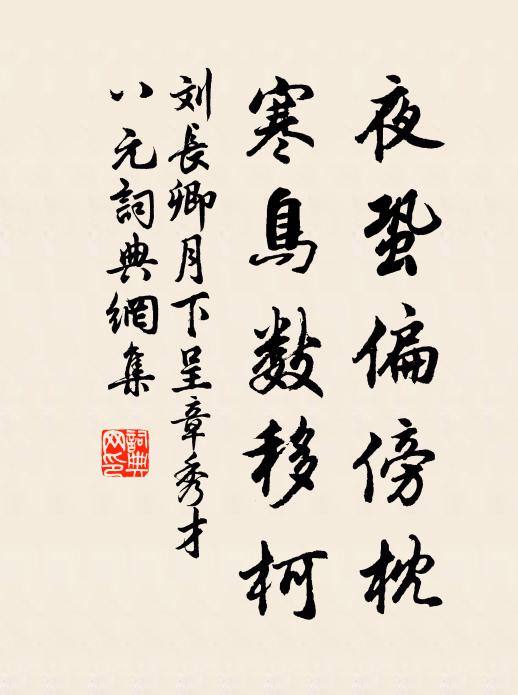 夜蛩偏傍枕
寒鳥數移柯
刘長卿月下呈章秀才
八元詞典網集
詞典網印